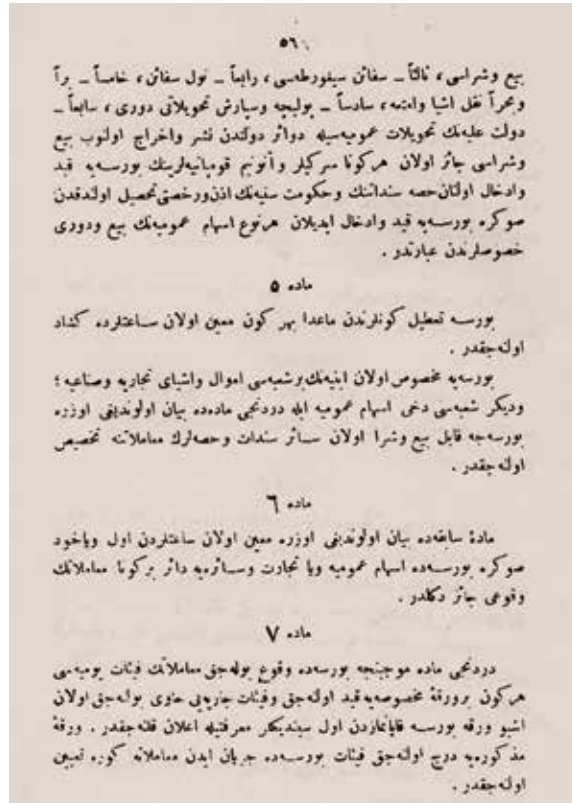 ٥٦
بيع وشراسی ، ثالثاً ــ سفائن سيغورطه‌سی ، رابعاً ــ نول سفائن ، خامساً ــ براً
وبحراً نقل اشيا وامتعه ، سادساً ــ پوليچه وسپارش تحويلاتی دوری ، سابعاً ــ
دولت عليه‌نك تحويلات عموميه‌سيله دوائر دولتدن نشر واخراج اولنوب بيع
وشراسی جائز اولان هركونا سركيلر وآنونيم قومپانيه‌لرينك بورسه‌يه قيد
وادخال اولنان حصه سنداتنك وحكومت سنيه‌نك اذن ورخصتی تحصيل اولندقدن
صوكره بورسه‌يه قيد وادخال ايديلان هرنوع اسهام عموميه‌نك بيع ودوری
خصوصلرندن عبارتدر .
ماده ٥
بورسه تعطيل كونلرندن ماعدا بهر كون معين اولان ساعتلرده كشاد
اوله‌جقدر .
بورسه‌يه مخصوص اولان ابنيه‌نك برشعبه‌سی اموال واشيای تجاريه وصناعيه ؛
وديكر شعبه‌سی دخی اسهام عموميه ايله دردنجی ماده‌ده بيان اولونديغی اوزره
بورسه‌جه قابل بيع وشرا اولان سائر سندات وحصه‌لرك معاملاتنه تخصيص
اوله‌جقدر .
ماده ٦
مادهٔ سابقه‌ده بيان اولونديغی اوزره معين اولان ساعتلردن اول وياخود
صوكره بورسه‌ده اسهام عموميه ويا تجارت وسائره‌يه دائر بركونا معاملاتك
وقوعی جائز دكلدر .
ماده ٧
دردنجی ماده موجبنجه بورسه‌ده وقوع بوله‌جق معاملاتك فيئات يوميه‌سی
هركون برورقهٔ مخصوصه‌يه قيد اوله‌جق وفيئات جاريه‌يی حاوی بوله‌جق اولان
اشبو ورقه بورسه قاپانمازدن اول سينديكلر معرفتيله اعلان قلنه‌جقدر . ورقهٔ
مذكوره‌يه درج اوله‌جق فيئات بورسه‌ده جريان ايدن معاملاته كوره تعيين
اوله‌جقدر .